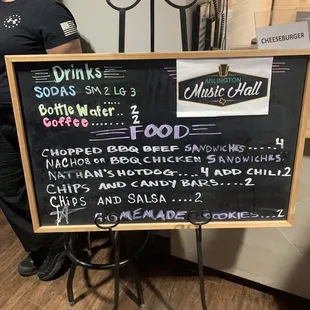 CHEESEBURGER
Drinks
SODAS SM 2 LG 3
Bottle Water.. 2
Coffee ...... 2
ARLINGTON
Music Hall
FOOD
CHOPPED BBQ BEEF SANDWICHES....4
NACHOS OR BBQ CHICKEN SANDWICHES
NATHAN'S HOTDOG....4 ADD CHILI.2
CHIPS AND CANDY BARS....2
CHIPS AND SALSA ..2
HOMEMADE COOKIES...2